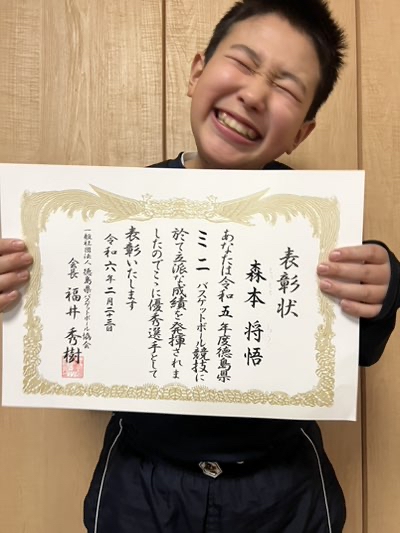 表彰状
森本 将悟
あなたは令和五年度徳島県
ミニバスケットボール競技に
於て立派な成績を発揮されま
したのでここに優秀選手として
表彰いたします
令和六年二月二十三日
一般社団法人 徳島県バスケットボール協会
会長 福井 秀樹